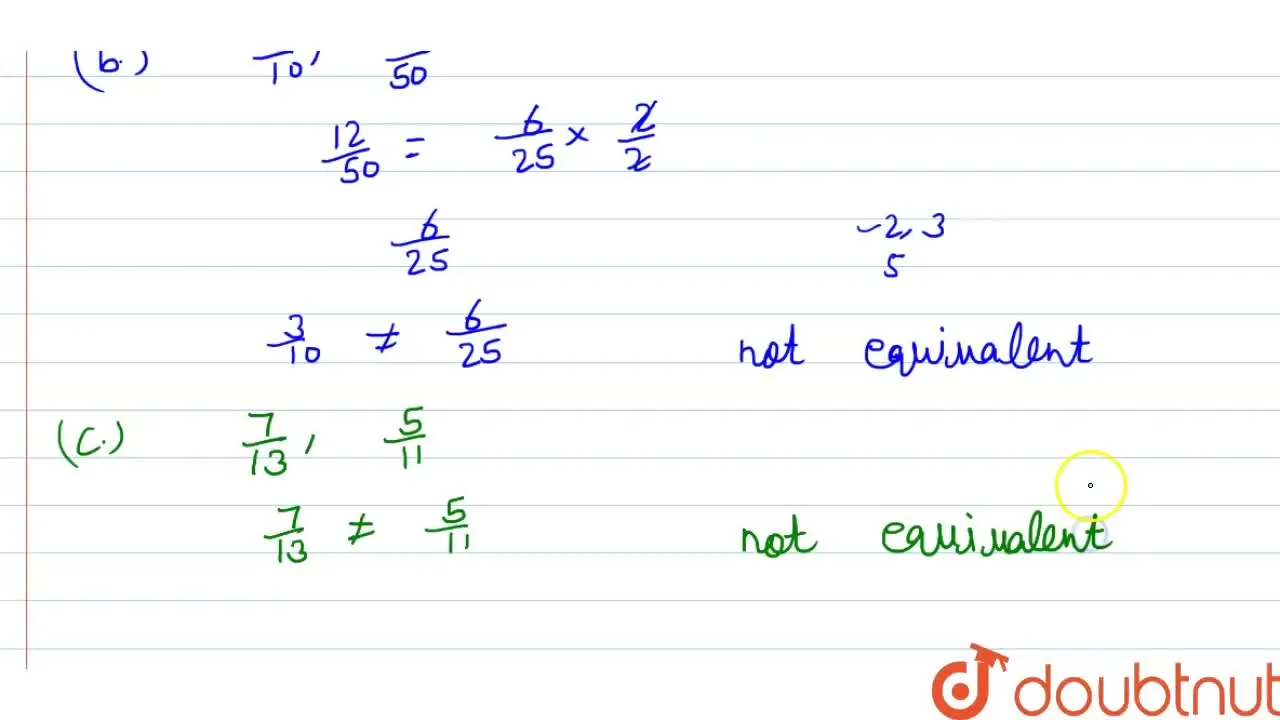 (b.) /10, /50
12/50 = 6/25 × 2/2
6/25
-2, 3
5
3/10 ≠ 6/25 not equivalent
(C.) 7/13, 5/11
7/13 ≠ 5/11 not equivalent
doubtnut